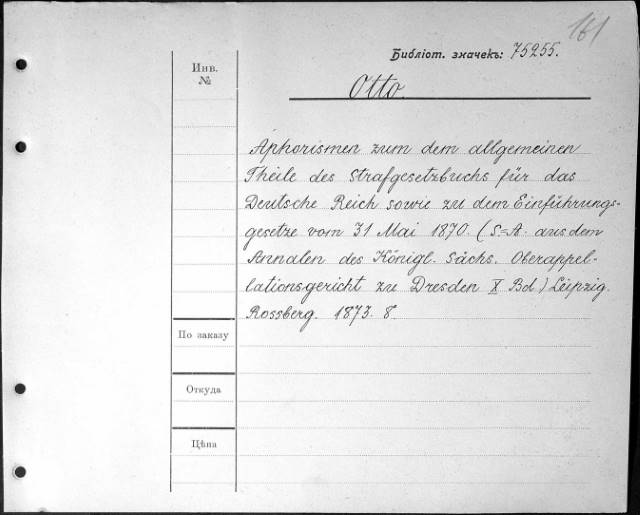 161
Библіот. значекъ: 75255.
Инв.
№
Otto.
Aphorismen zum dem allgemeinen
Theile des Strafgesetzbuchs für das
Deutsche Reich sowie zu dem Einführungs-
gesetze vom 31 Mai 1870. (S=A. aus dem
Annalen des Königl. Sächs. Oberappel-
lationsgericht zu Dresden X Bd.) Leipzig.
Rossberg. 1873. 8.
По заказу
Откуда
Цѣна